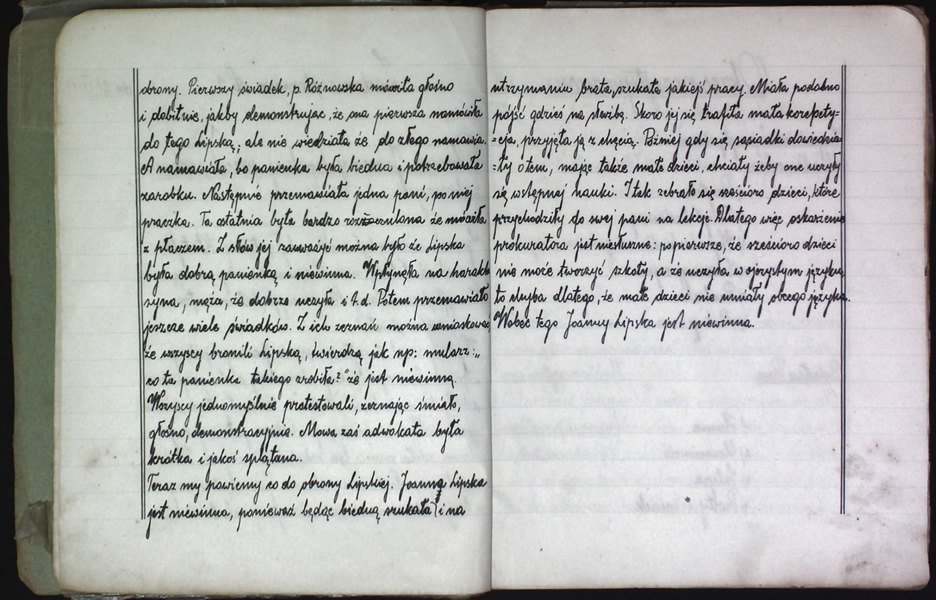 obrony. Pierwszy świadek, p. Różnowska mówiła głośno
i dobitnie, jakby demonstrując, że ona pierwsza namówiła
do tego Lipską, ale nie wiedziała że do złego namawia.
A namawiała, bo panienka była biedna i potrzebowała
zarobku. Następnie przemawiała jedna pani, po niej
praczka. Ta ostatnia była bardzo rozczulona że mówiła
z płaczem. Z słów jej zauważyć można było że Lipska
była dobrą panienką i niewinna. Wpłynęła na charakt
syna, męża, że dobrze uczyła i t.d. Potem przemawiało
jeszcze wiele świadków. Z ich zeznań można wnioskować
że wszyscy bronili Lipską, twierdzą jak np: mularz: „
co ta panienka takiego zrobiła?" że jest niewinną.
Wszyscy jednomyślnie protestowali, zeznając śmiało,
głośno, demonstracyjnie. Mowa zaś adwokata była
krótka i jakoś splątana.
Teraz my powiemy co do obrony Lipskiej. Joanna Lipska
jest niewinna, ponieważ będąc biedną szukała i na
utrzymaniu brata, szukała jakiejś pracy. Miała podobno
pójść gdzieś na służbę. Skoro jej się trafiła mała korepety-
cja, przyjęła ją z chęcią. Później gdy się sąsiadki dowiedzia-
ły o tem, mając także małe dzieci, chciały żeby one uczyły
się wstępnej nauki. I tak zebrało się sześcioro dzieci, które
przychodziły do swej pani na lekcje. Dlatego więc oskarżenie
prokuratora jest niesłuszne: po pierwsze, że sześcioro dzieci
nie może tworzyć szkoły, a że uczyła w ojczystym języku,
to chyba dlatego, że małe dzieci nie umiały obcego języka.
Wobec tego Joanny Lipska jest niewinna.